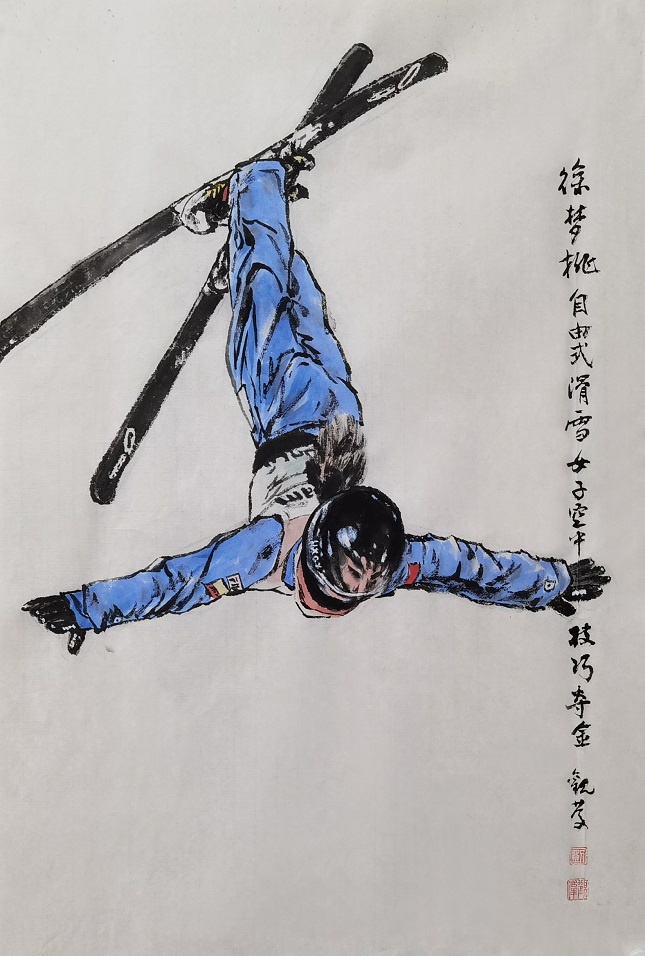 徐梦桃自由式滑雪女子空中技巧夺金